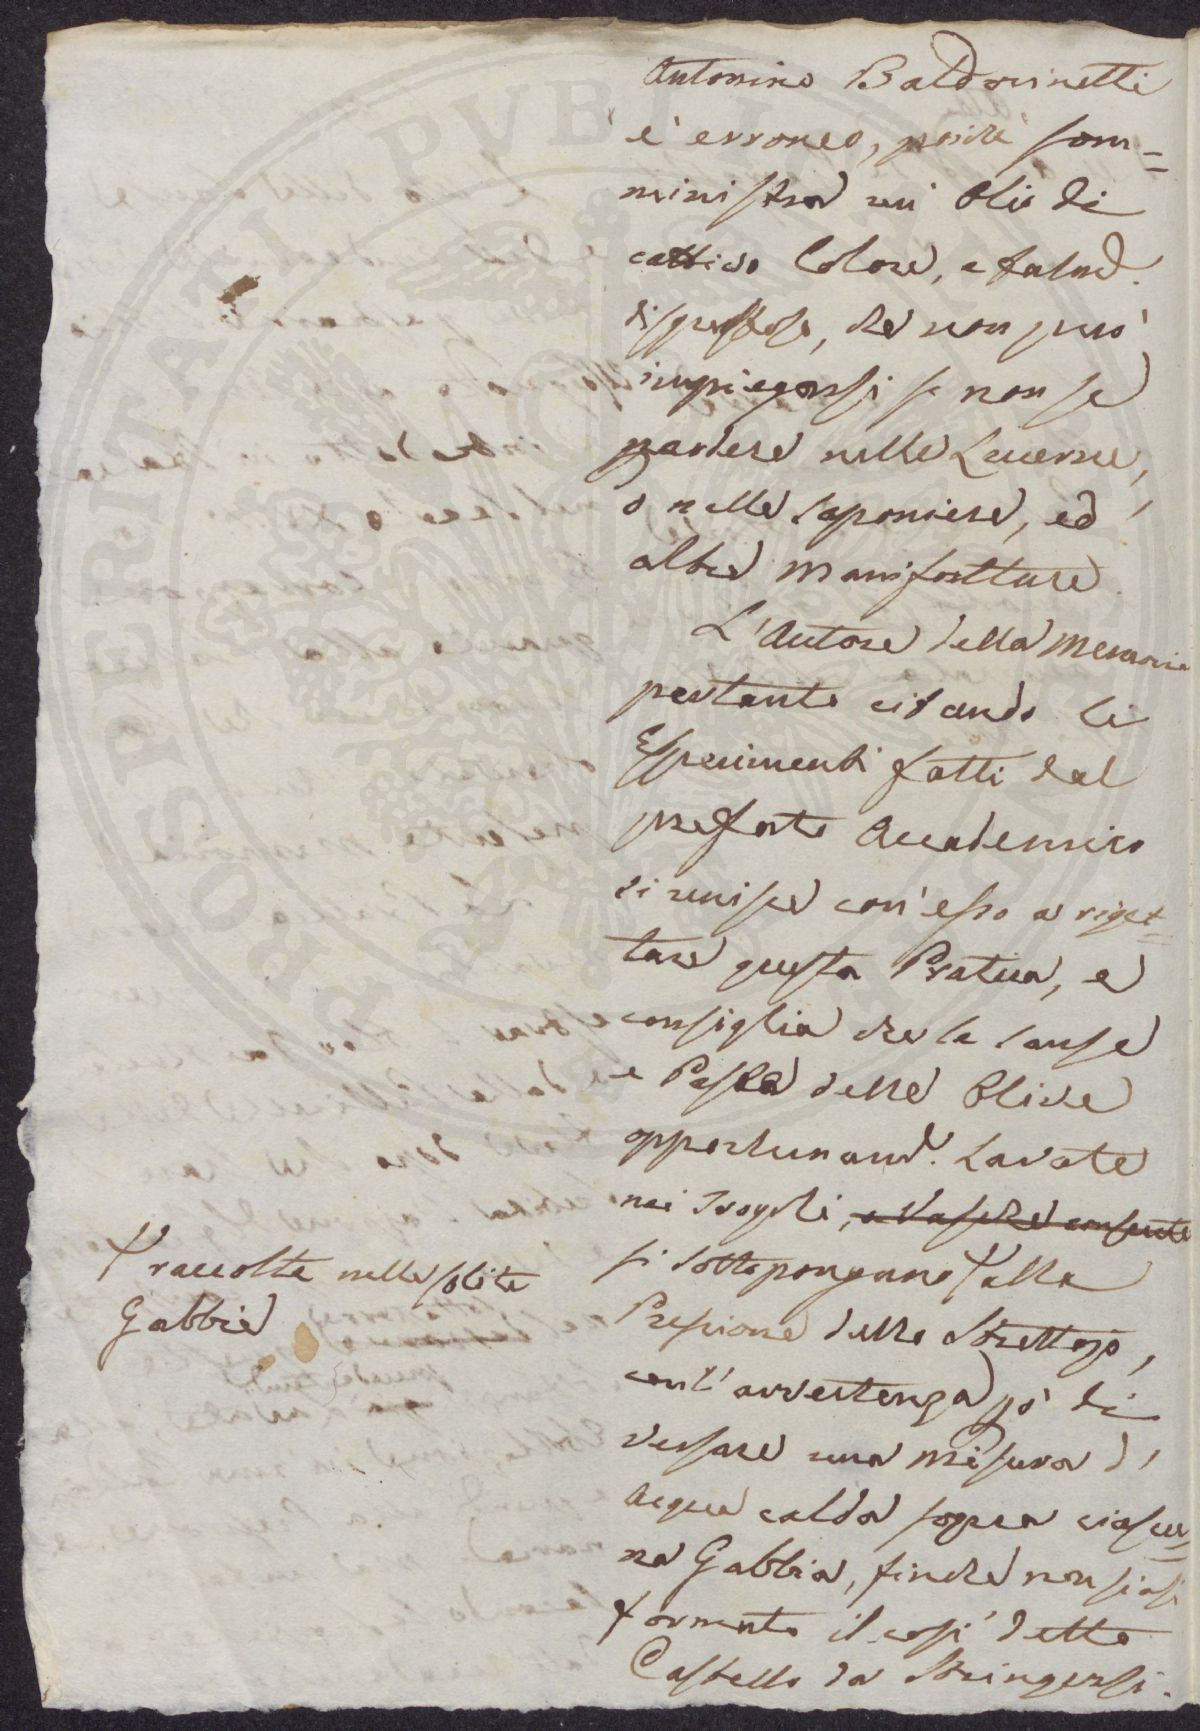 Antonino Baldovinetti
e' erroneo, poiché som=
ministra un' Olio di
cattivo Colore, e salmd.
disgustoso, che non può
impiegarsi se non se
ardere nelle Lucerne,
o nelle saponiere, ed
altre Manifatture.
L'Autore della Memoria
pertanto citando li
Esperimenti fatti dal
prefato Accademico
si unisce con'esso a riget=
tare questa Pratica, e
consiglia che le sanse
e Pasta delle Olive
opportunamd. Lavate
nei Trogoli,
si sottopongano alla
Pressione dello Strettojo,
con l'avvertenza pò di
versare una misura d'
Acqua calda sopra ciascu=
na Gabbia, finche non siasi
formato il così detto
Castello da Stringersi.
raccolte nelle solite
Gabbie